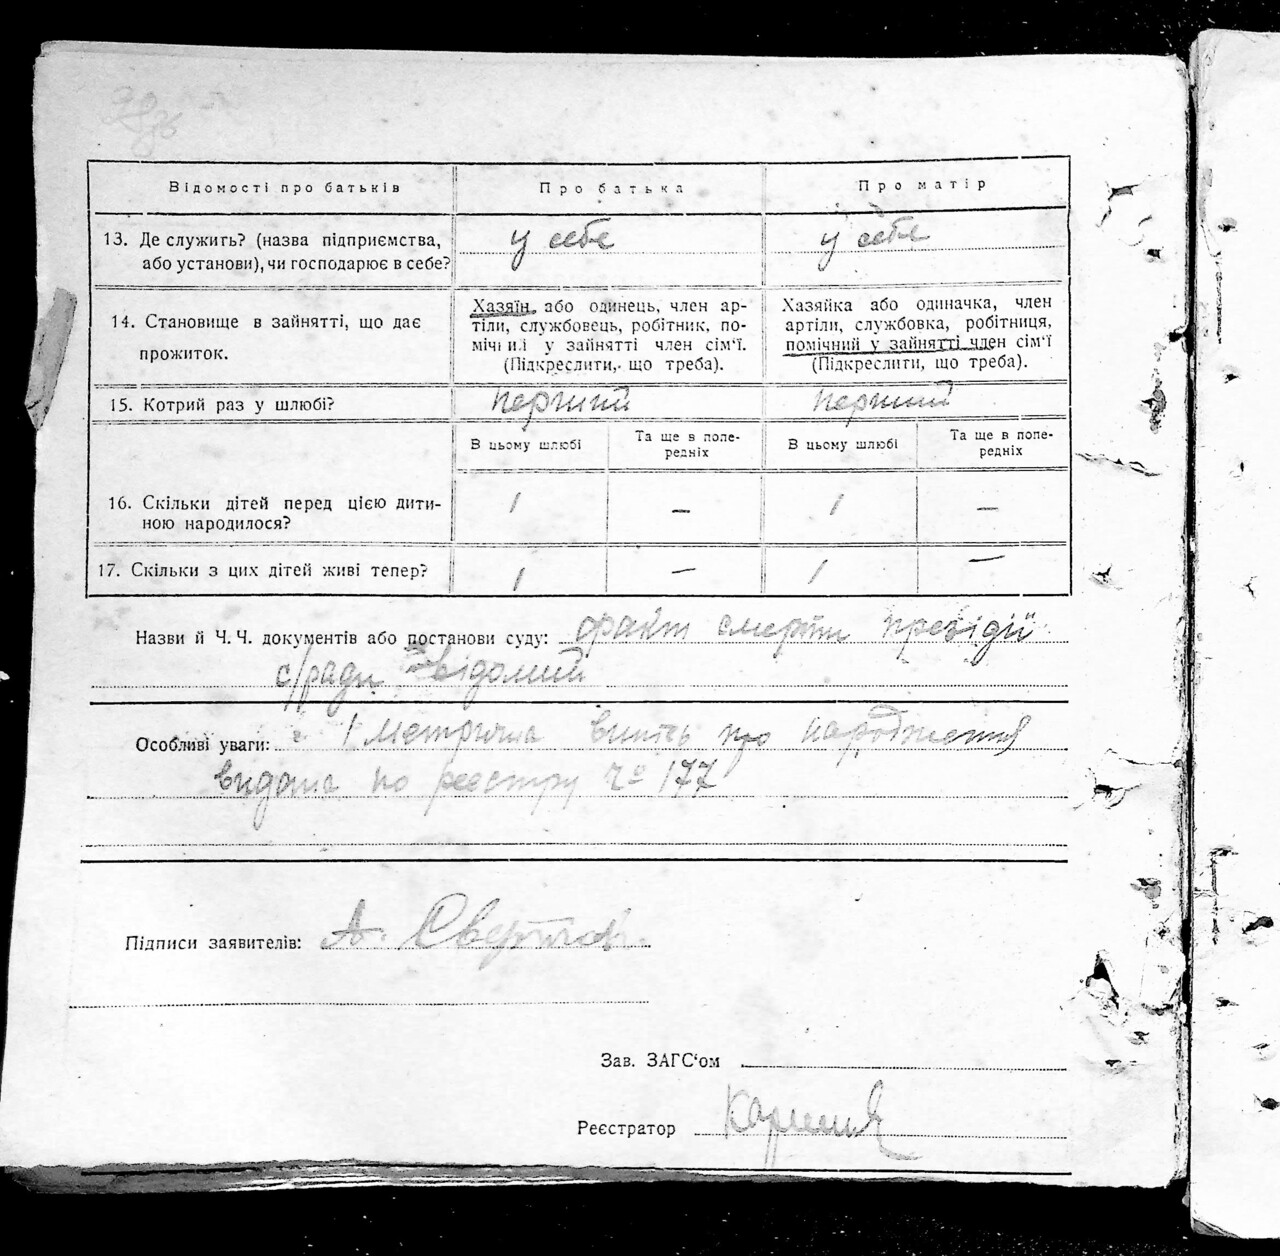 Відомості про батьків
Про батька
Про матір
13. Де служить? (назва підприємства, або установи), чи господарює в себе?
у себе
у себе
14. Становище в зайнятті, що дає прожиток.
Хазяїн або одинець, член ар-
тіли, службовець, робітник, по-
мічний у зайнятті член сім'ї.
(Підкреслити, що треба).
Хазяйка або одиначка, член
артіли, службовка, робітниця,
помічний у зайнятті член сім'ї
(Підкреслити, що треба).
15. Котрий раз у шлюбі?
перший
перший
В цьому шлюбі
Та ще в попе-
редніх
В цьому шлюбі
Та ще в попе-
редніх
16. Скільки дітей перед цією дити-
ною народилося?
1
—
1
—
17. Скільки з цих дітей живі тепер?
1
—
1
—
Назви й Ч. Ч. документів або постанови суду: факт смерти президії
с/ради відомий
Особливі уваги: Метрична випись про народження
видана по реєстру Ч° 177
Підписи заявителів: А.
Зав. ЗАГС'ом
Реєстратор